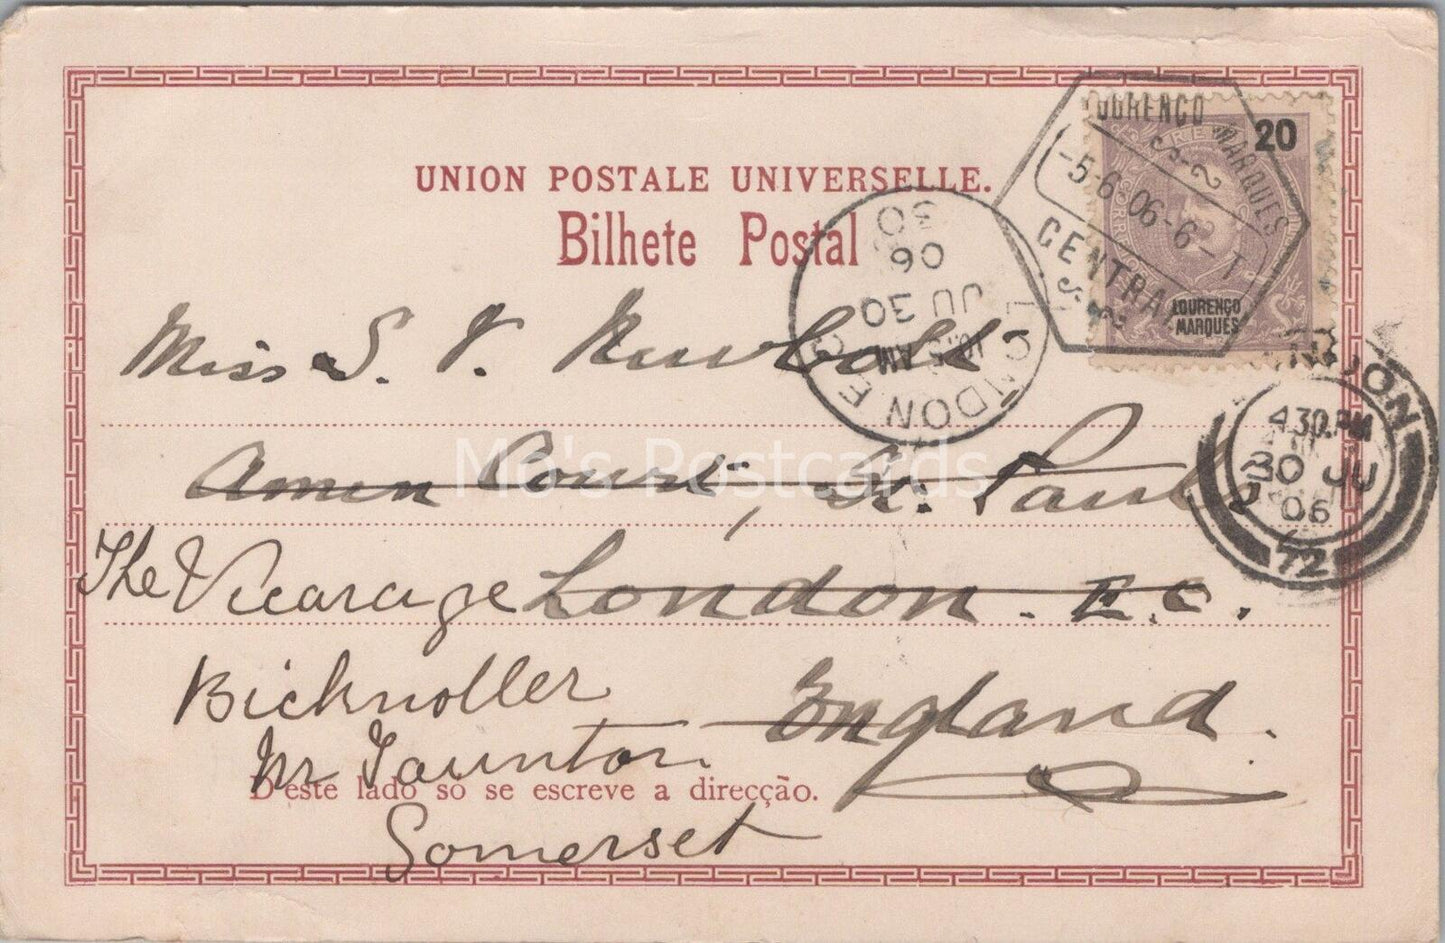 UNION POSTALE UNIVERSELLE.
Bilhete Postal
20
LOURENÇO
MARQUES
LOURENÇO MARQUES
-5-6-06-6-T
CENTRAL
LONDON E.C
10.15 AM
JU 30
06
30
LONDON
4.30.PM
30 JU
06
72
Miss S. V. Newbold
Amen Court, St. Pauls
The Vicarage London. E.C.
Bicknoller England.
Nr Taunton.
D'este lado só se escreve a direcção.
Somerset
Mo's Postcards